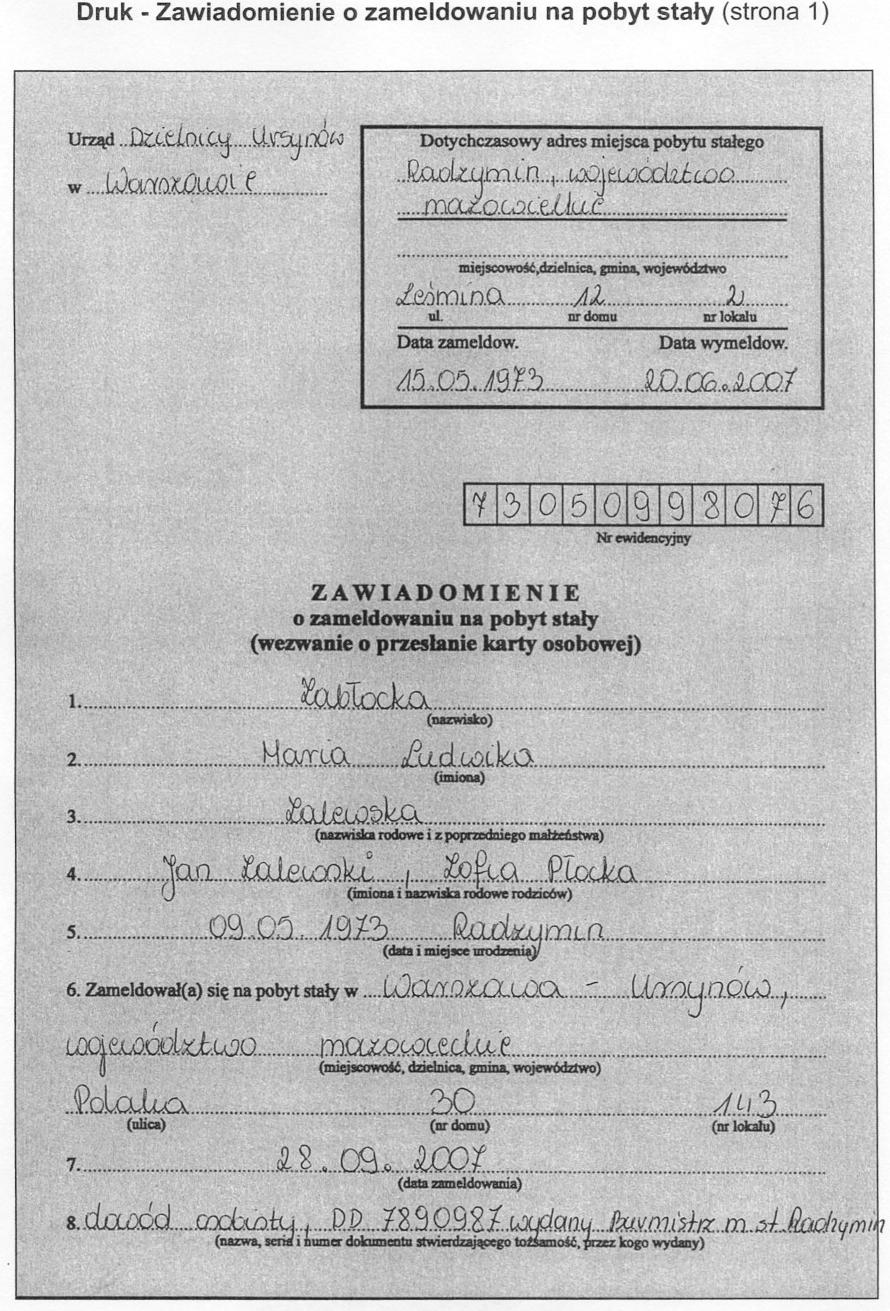 Druk - Zawiadomienie o zameldowaniu na pobyt stały (strona 1)
Urząd Dzielnicy Ursynów
w Warszawie
Dotychczasowy adres miejsca pobytu stałego
Radzymin, województwo
mazowieckie
miejscowość,dzielnica, gmina, województwo
Leśmina 12 2
ul. nr domu nr lokalu
Data zameldow. Data wymeldow.
15.05.1973 20.06.2007
73050998076
Nr ewidencyjny
ZAWIADOMIENIE
o zameldowaniu na pobyt stały
(wezwanie o przesłanie karty osobowej)
1. Zabłocka
(nazwisko)
2. Maria Ludwika
(imiona)
3. Zalewska
(nazwiska rodowe i z poprzedniego małżeństwa)
4. Jan Zalewski, Zofia Płocka
(imiona i nazwiska rodowe rodziców)
5. 09.05.1973 Radzymin
(data i miejsce urodzenia)
6. Zameldował(a) się na pobyt stały w Warszawa - Ursynów,
województwo mazowieckie
(miejscowość, dzielnica, gmina, województwo)
Polaka 30 143
(ulica) (nr domu) (nr lokalu)
7. 28.09.2007
(data zameldowania)
8. dowód osobisty, DD 7890987 wydany Burmistrz m. st. Radzymin
(nazwa, seria i numer dokumentu stwierdzającego tożsamość, przez kogo wydany)